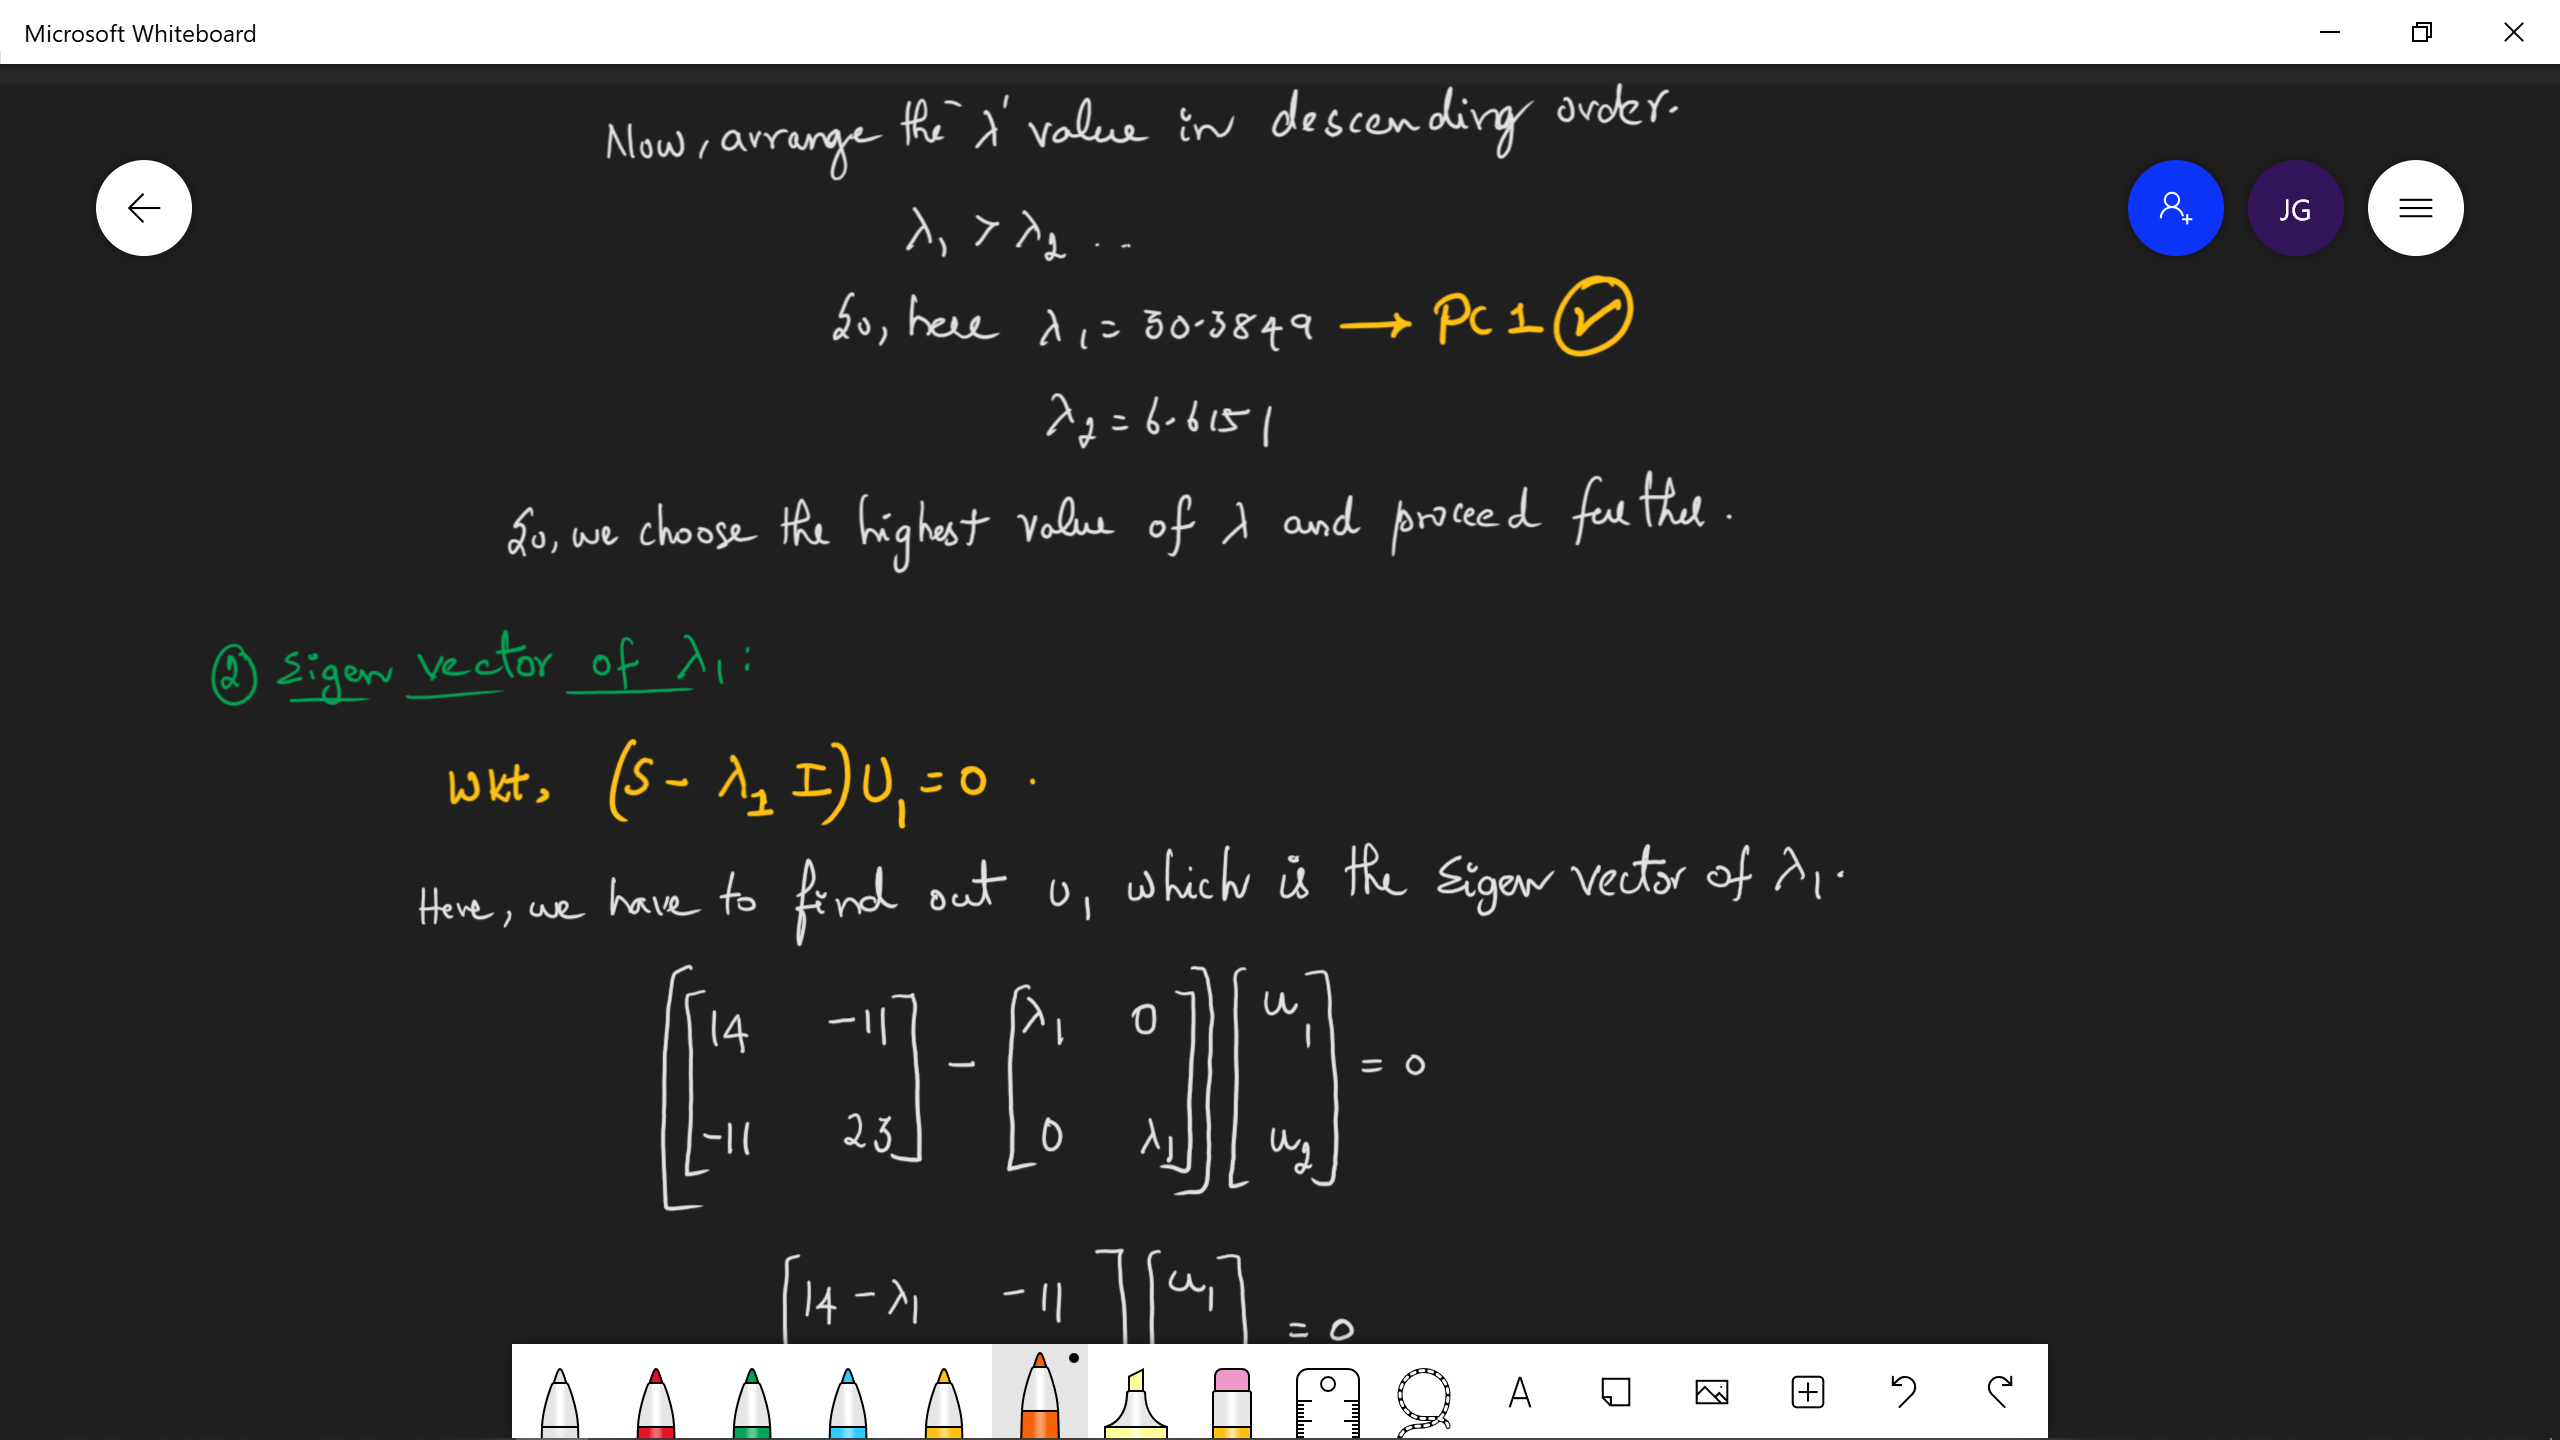 Microsoft Whiteboard
Now, arrange the 'λ' value in descending order.
JG
λ₁ > λ₂ ...
So, here λ₁ = 30.3849 → PC 1 ✓
λ₂ = 6.6151
So, we choose the highest value of λ and proceed further.
② Eigen vector of λ₁:
WKt, (S - λ₁ I) U₁ = 0 .
Here, we have to find out U₁ which is the Eigen vector of λ₁.
[ [ 14 -11 ] - [ λ₁ 0 ] ] [ u₁ ]
[ [ -11 23 ] - [ 0 λ₁ ] ] [ u₂ ] = 0
[ 14 - λ₁ -11 ] [ u₁ ] = 0